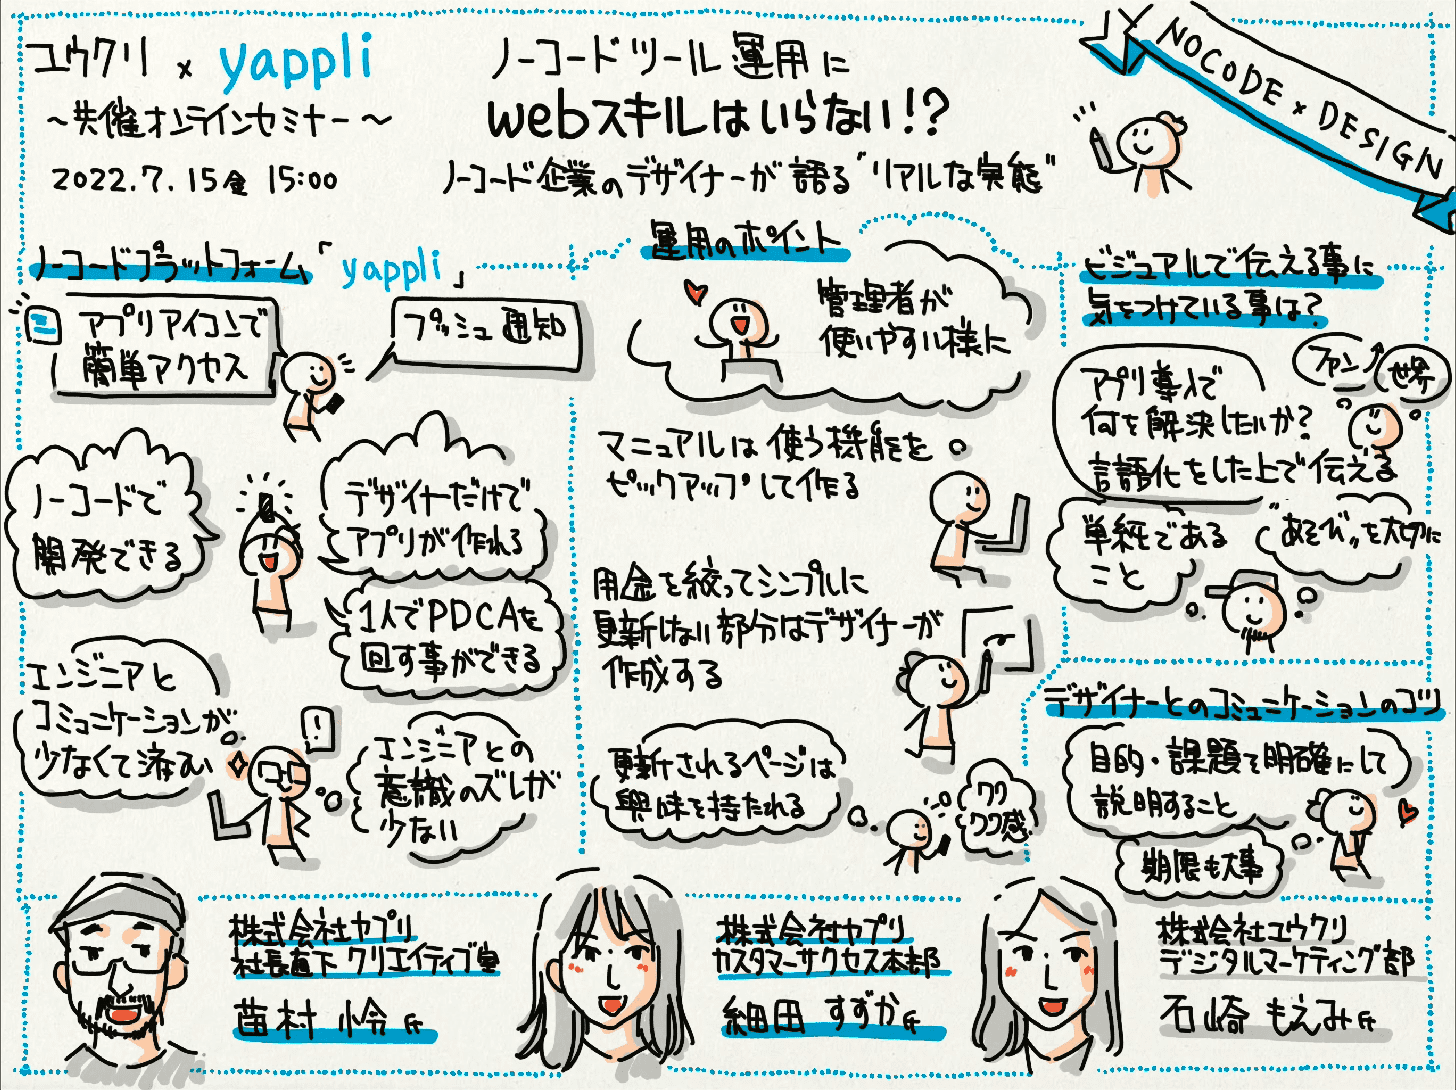 ユウクリ × yappli
～共催オンラインセミナー～
2022.7.15金 15:00
ノーコードツール運用に
webスキルはいらない!?
ノーコード企業のデザイナーが語る"リアルな実態"
NOCODE × DESIGN
ノーコードプラットフォーム「yappli」
アプリアイコンで
簡単アクセス
プッシュ通知
ノーコードで
開発できる
デザイナーだけで
アプリが作れる
1人でPDCAを
回す事ができる
エンジニアと
コミュニケーションが
少なくて済む
!
エンジニアとの
意識のズレが
少ない
運用のポイント
管理者が
使いやすい様に
マニュアルは使う機能を
ピックアップして作る
用途を絞ってシンプルに
更新しない部分はデザイナーが
作成する
更新されるページは
興味を持たれる
ワク
ワク感
ビジュアルで伝える事に
気をつけている事は?
アプリ導入で
何を解決したいか?
言語化をした上で伝える
ファン↑
世界
単純である
こと
"あそび"を大切に
デザイナーとのコミュニケーションのコツ
目的・課題を明確にして
説明すること
期限も大事
株式会社ヤプリ
社長直下 クリエイティブ室
苗村 怜氏
株式会社ヤプリ
カスタマーサクセス本部
細田 すずか氏
株式会社ユウクリ
デジタルマーケティング部
石崎 もえみ氏